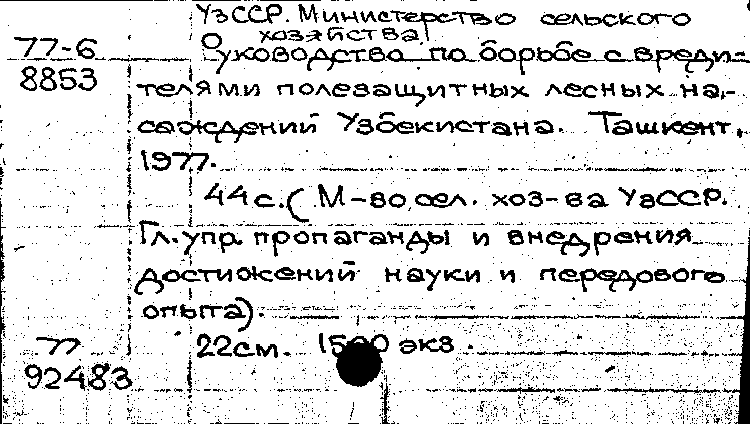 УзССР. Министерство сельского
хозяйства
77-6 Руководство по борьбе с вреди-
8853 телями полезащитных лесных на-
саждений Узбекистана. Ташкент,
1977.
44 с. (М-во сел. хоз-ва УзССР.
Гл. упр. пропаганды и внедрения
достижений науки и передового
опыта).
77 22 см. 1500 экз.
92483